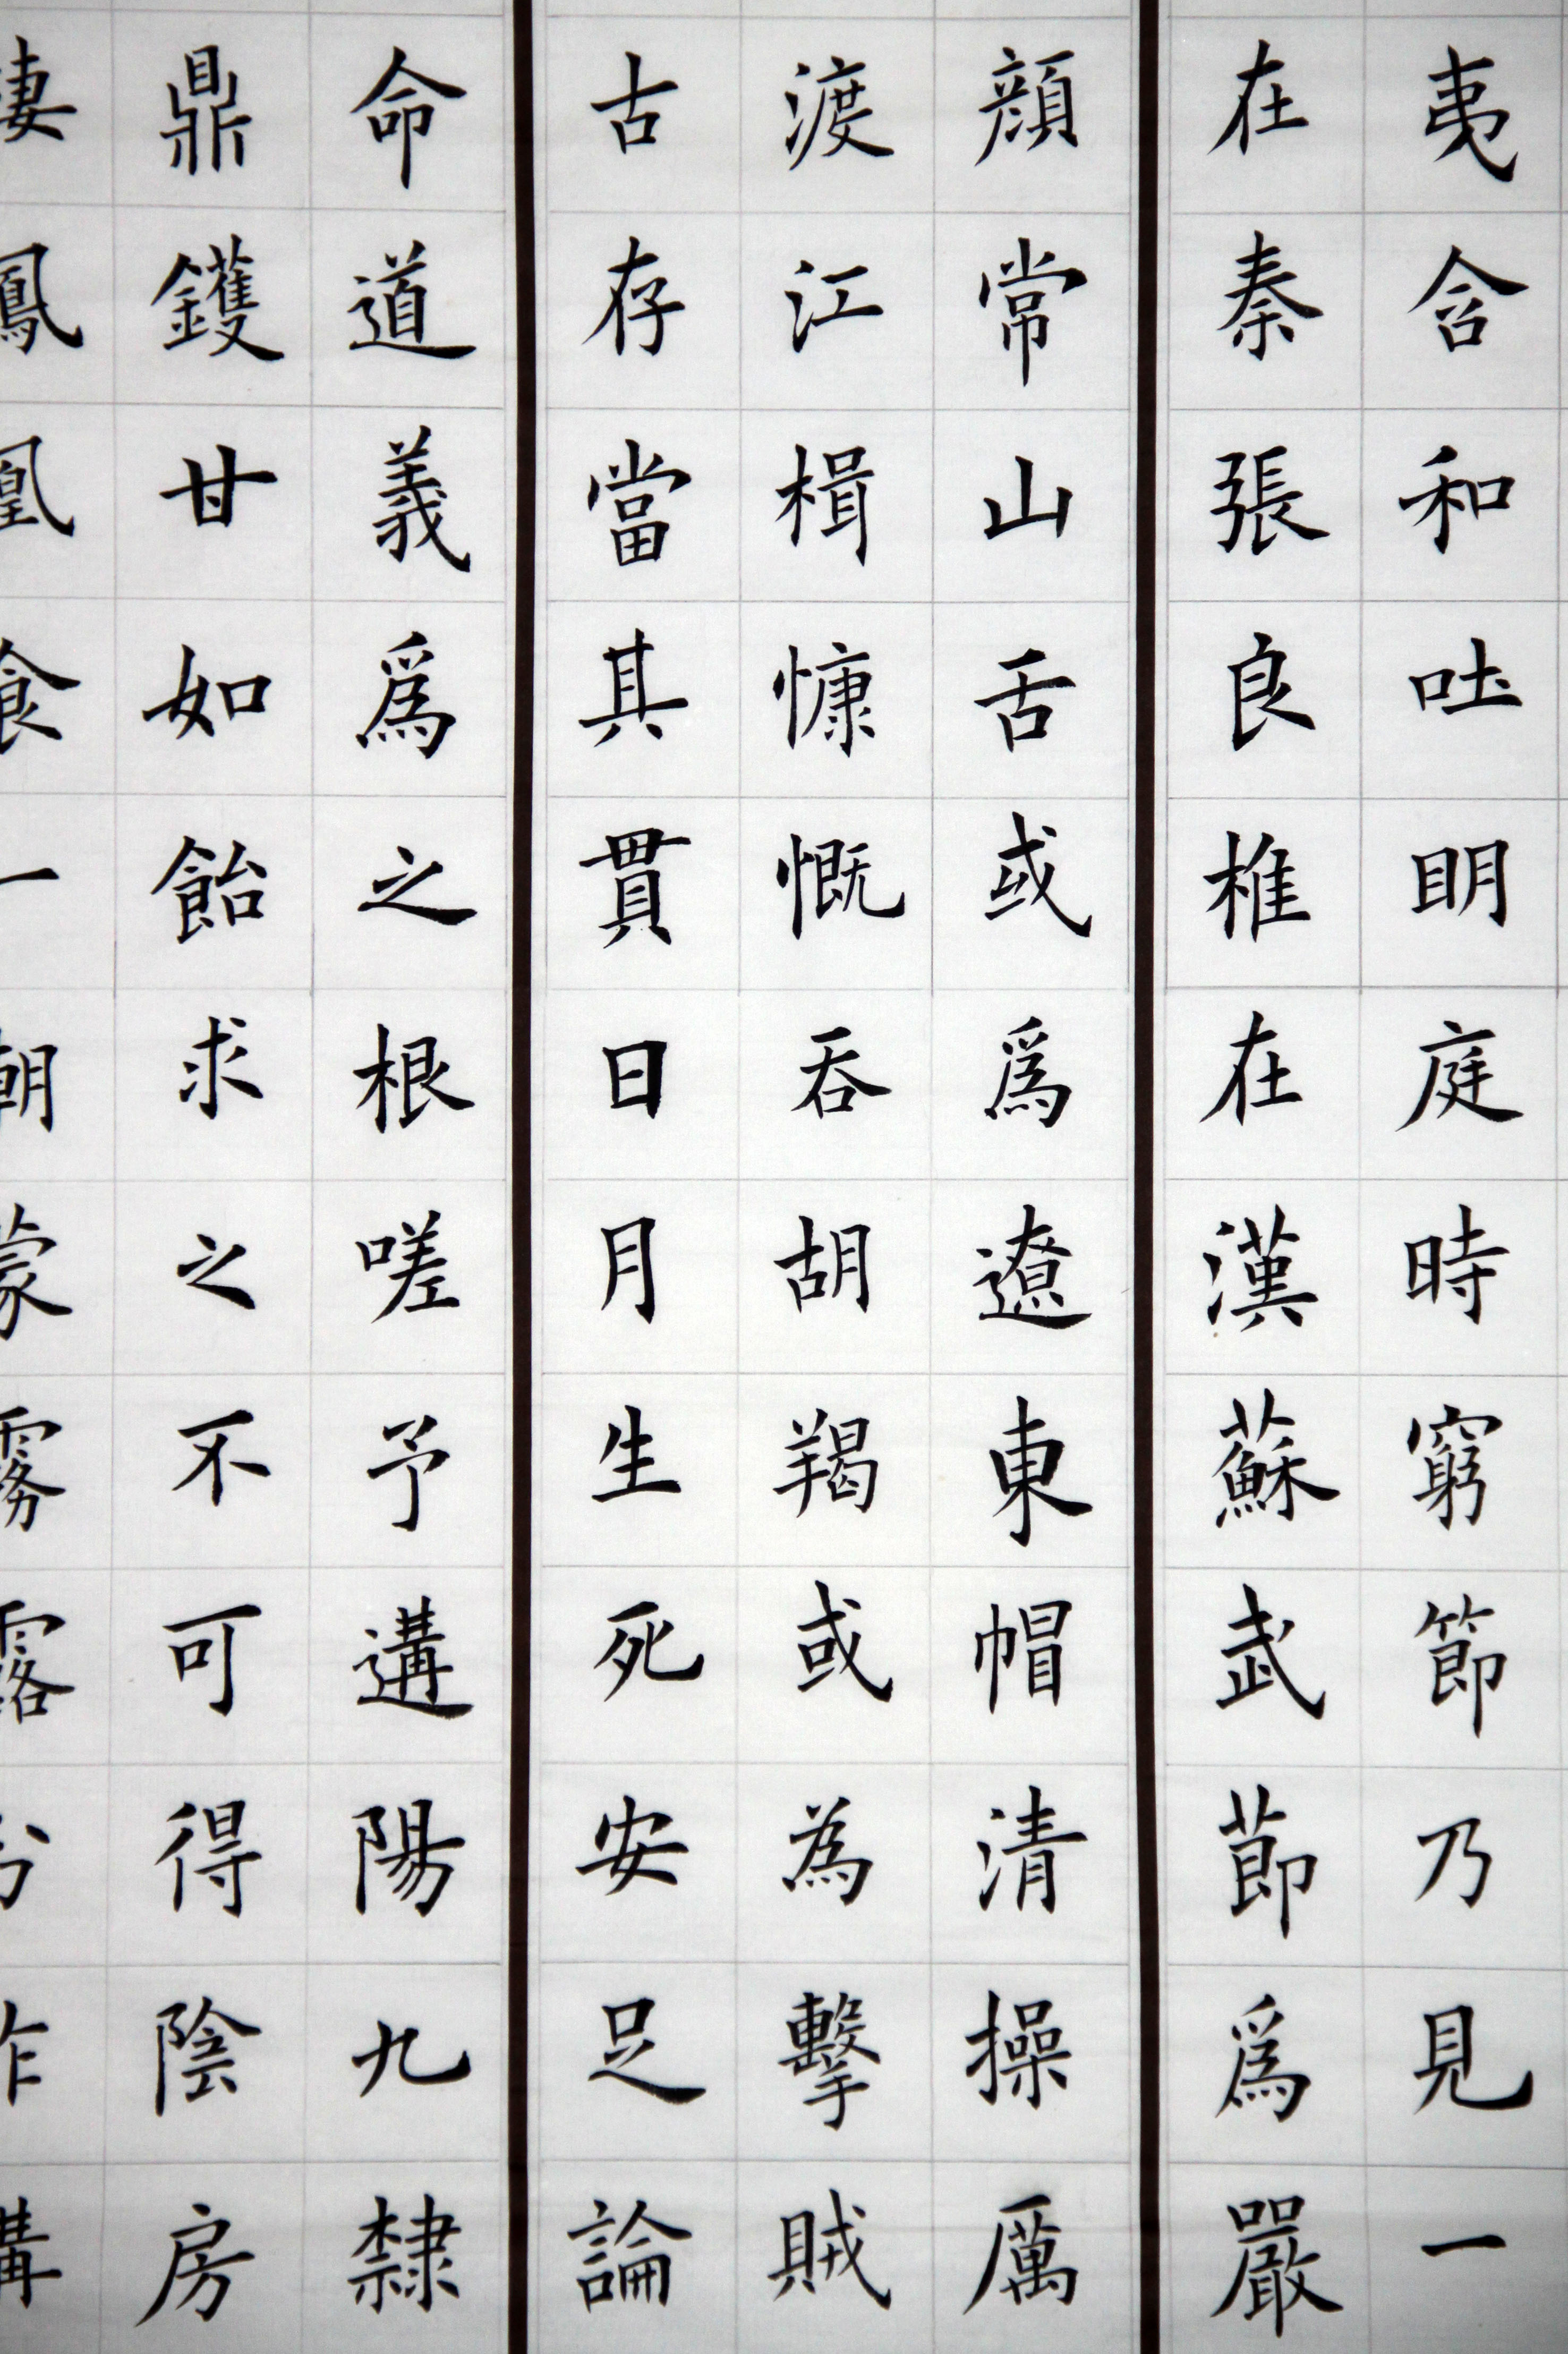 夷含和吐眀庭時窮節乃見一
在秦張良椎在漢蘇武節爲嚴
顔常山舌或爲遼東帽清操厲
渡江楫慷慨吞胡羯或為擊賊
古存當其貫日月生死安足論
命道義爲之根嗟予遘陽九隷
鼎鑊甘如飴求之不可得陰房
棲鳳凰食一朝蒙霧露分作溝